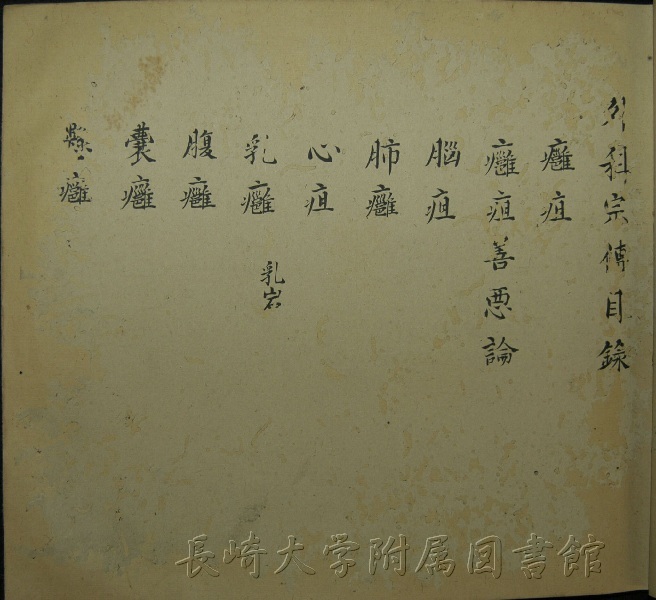 外科宗傳目録
癰疽
癰疽善悪論
脳疽
肺癰
心疽
乳癰 乳岩
腹癰
嚢癰
懸癰
長崎大学附属図書館